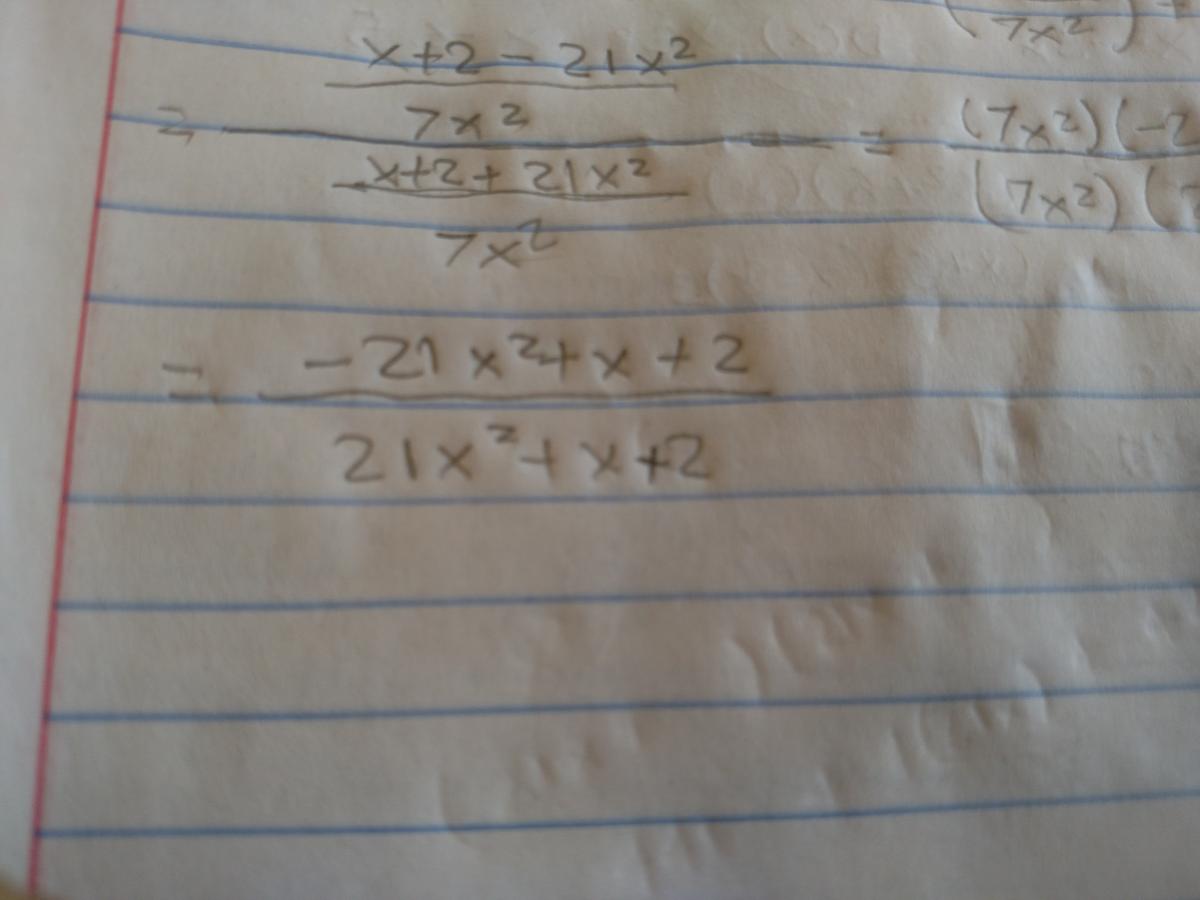 x+2-21x²
7x²
= = (7x²)(-2
x+2+21x² (7x²)(
7x²
7x²)
= -21x²+x+2
21x²+x+2